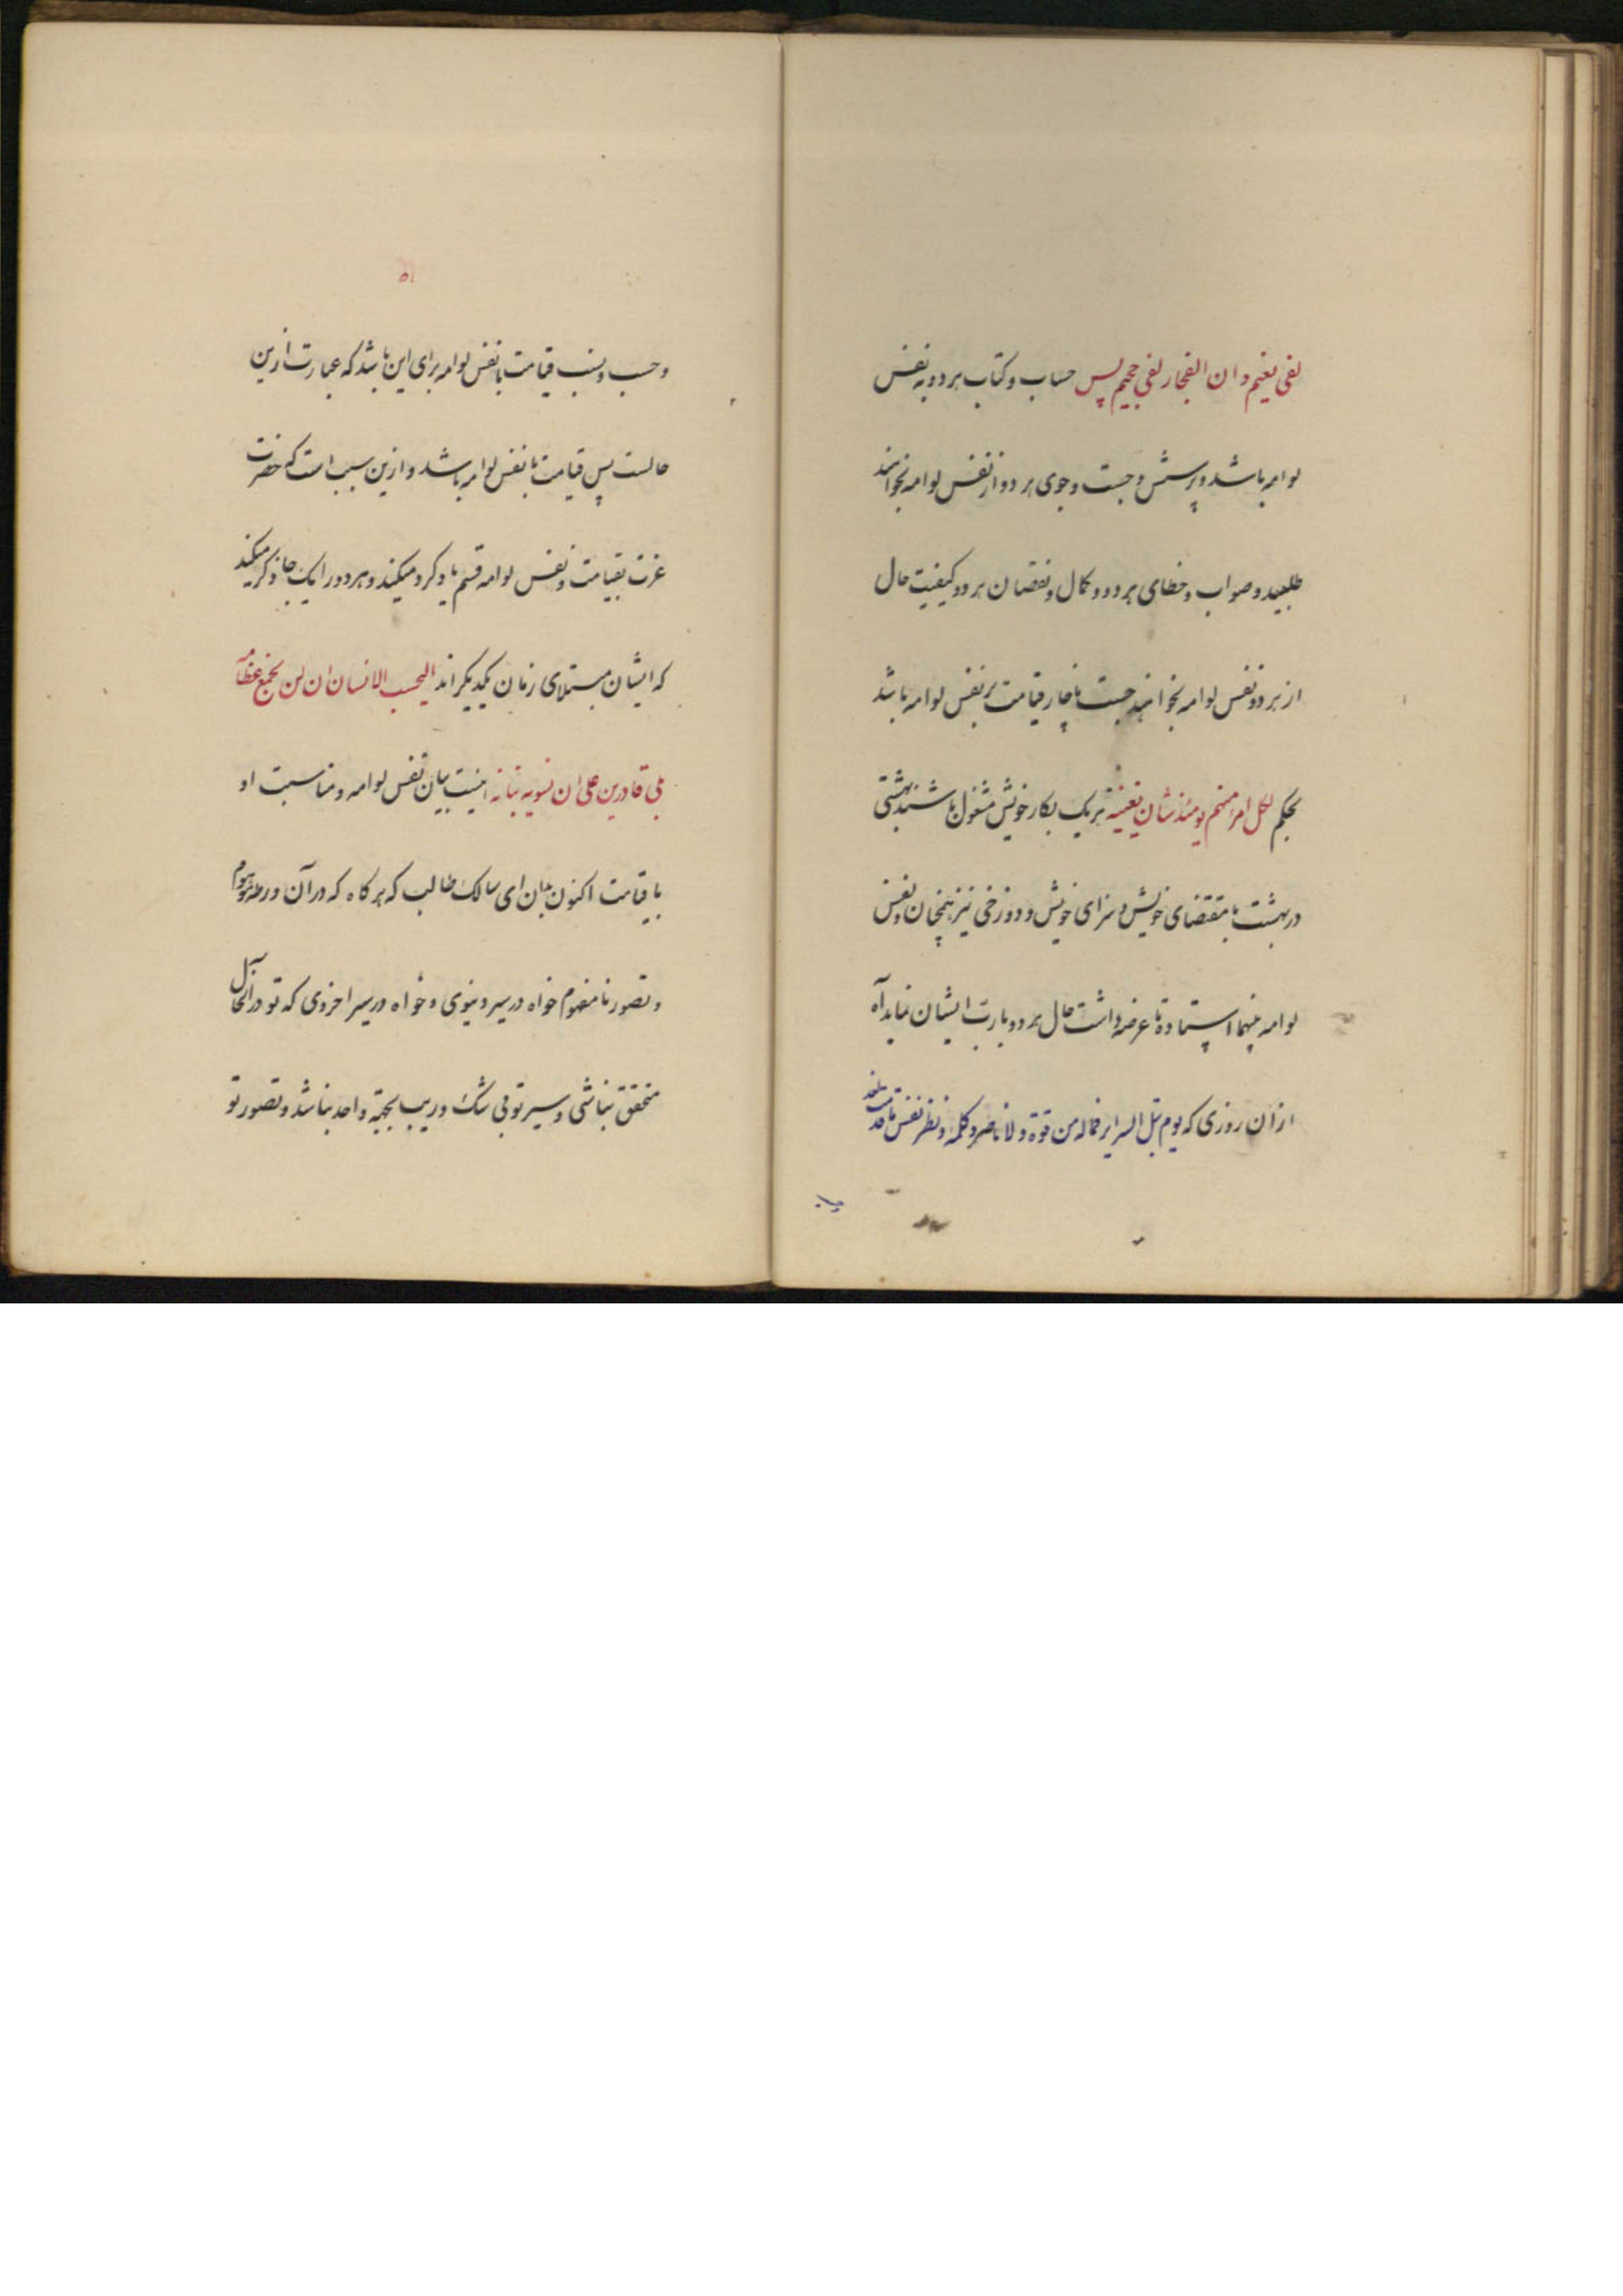 لفی نعیم و ان الفجار لفی جحیم پس حساب و کتاب هر دو به نفس
لوامه باشد و پرسش و جست و جوی هر دو از نفس لوامه بخواهند
طلبید و صواب و خطای هر دو و کمال و نقصان هر دو کیفیت حال
از هر دو نفس لوامه بخواهند جست ناچار قیامت بر نفس لوامه باشد
بحکم لکل امرء منهم یومئذ شان یغنیه هر یک بکار خویش مشغول باشند بهشتی
در بهشت بامقتضای خویش و سزای خویش و دوزخی نیز همچنان و نفس
لوامه بینهما ایستاده تا عرضه داشت حال هر دو بارت ایشان نماید آه
از ان روزی که یوم تبلی السرایر فماله من قوة و لا ناصر و کلمه و نظر نفس ما قدمت لغد
۵۱
و حسب و نسب قیامت با نفس لوامه برای این باشد که عبارت ازین
حالست پس قیامت با نفس لوامه باشد و ازین سبب است که حضرت
عزت بقیامت و نفس لوامه قسم یاد کرد میکند و هر دو را یک جا ذکر میکند
که ایشان مبتلای زمان یکدیگراند ایحسب الانسان ان لن نجمع عظامه
بلی قادرین علی ان نسوی بنانه اینست بیان نفس لوامه و مناسبت او
با قیامت اکنون بدان ای سالک طالب که هر کاه که در آن ورطه موهوم
و تصور نامفهوم خواه در سیر دنیوی و خواه در سیر اخروی که تو در آن حال
متحقق نباشی و سیر تو بی شک و ریب بجهة واحد نباشد و تصور تو